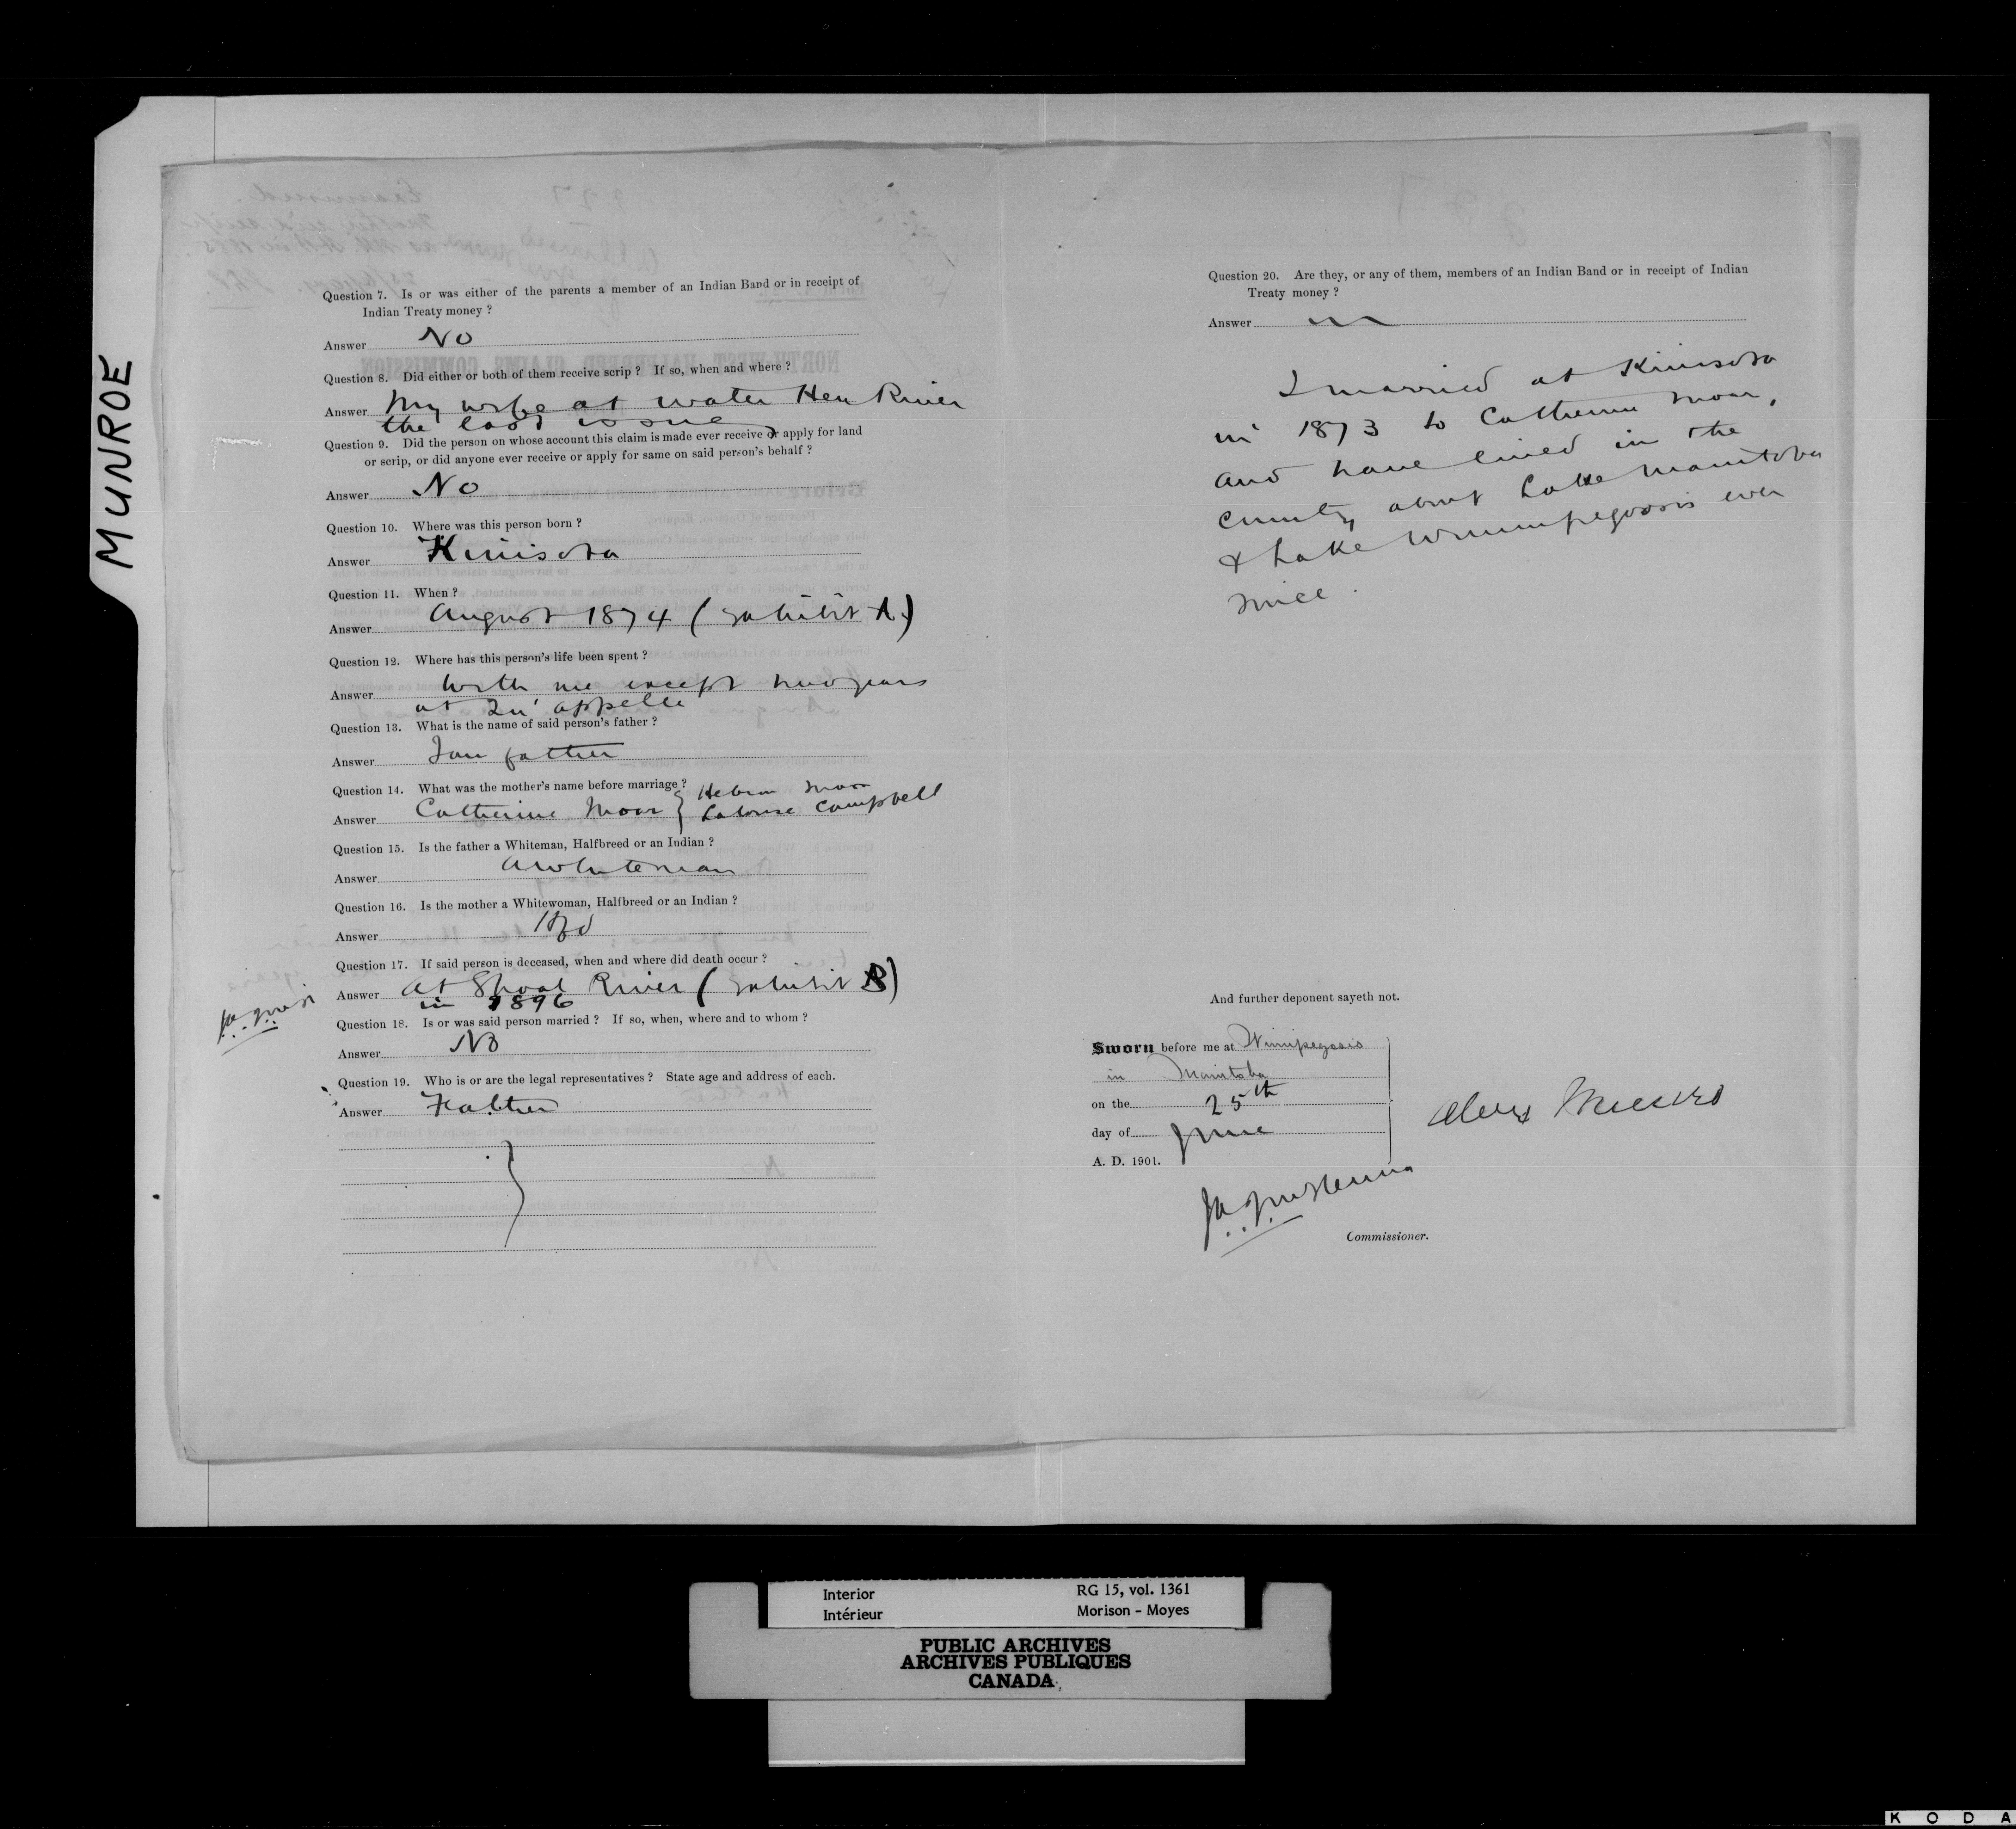 MUNROE
Question 7. Is or was either of the parents a member of an Indian Band or in receipt of
Indian Treaty money ?
Answer No
Question 8. Did either or both of them receive scrip ? If so, when and where ?
Answer My wife at Water Hen River
the last issue
Question 9. Did the person on whose account this claim is made ever receive or apply for land
or scrip, or did anyone ever receive or apply for same on said person's behalf ?
Answer No
Question 10. Where was this person born ?
Answer Kinisota
Question 11. When ?
Answer August 1874 (Exhibit A)
Question 12. Where has this person's life been spent ?
Answer With me except two years
at Qu'appelle
Question 13. What is the name of said person's father ?
Answer I am father
Question 14. What was the mother's name before marriage ?
Answer Catherine Moar } Hebron Moar
Campbell
Question 15. Is the father a Whiteman, Halfbreed or an Indian ?
Answer A whiteman
Question 16. Is the mother a Whitewoman, Halfbreed or an Indian ?
Answer Hbd
Question 17. If said person is deceased, when and where did death occur ?
Answer At Shoal River (Exhibit B)
in 1896
Question 18. Is or was said person married ? If so, when, where and to whom ?
Answer No
Question 19. Who is or are the legal representatives ? State age and address of each.
Answer Father
Question 20. Are they, or any of them, members of an Indian Band or in receipt of Indian
Treaty money ?
Answer
I married at Kinisota
in 1873 to Catherine Moar,
and have lived in the
country about Lake Manitoba
& Lake Winnipegosis ever
since.
And further deponent sayeth not.
Sworn before me at Winnipegosis
in Manitoba
on the 25th
day of June
A. D. 1901.
Alex Munro
Commissioner.
Interior RG 15, vol. 1361
Intérieur Morison - Moyes
PUBLIC ARCHIVES
ARCHIVES PUBLIQUES
CANADA
K O D A